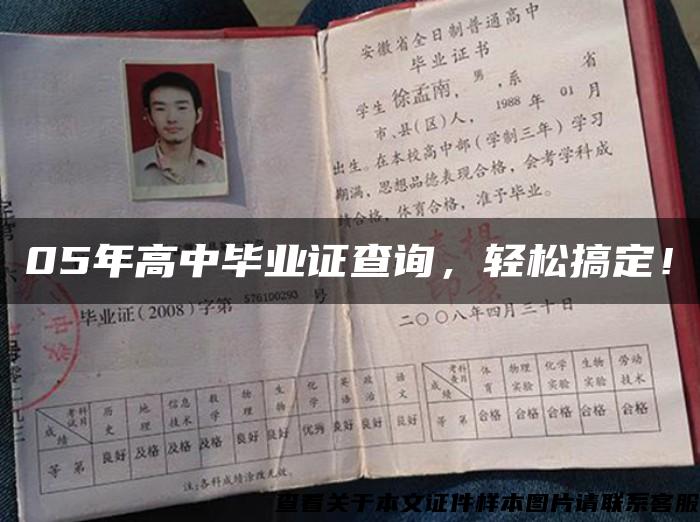 安徽省全日制普通高中
毕业证书
学生徐孟南，男，系 省
市、县(区)人，1988年01月
出生。在本校高中部(学制三年)学习
期满，思想品德表现合格，会考学科成
绩合格，体育合格，准予毕业。
05年高中毕业证查询，轻松搞定！
毕业证(2008)字第576100293号
二〇〇八年四月三十日
考试科目 历史 地理 信息技术 数学 物理 生物 化学 英语 政治 语文
成绩
等第 良好 及格 及格 及格 良好 良好 优秀 良好 良好 良好
注:各科成绩涂改无效。
考查科目 体育 物理实验 化学实验 生物实验 劳动技术
成绩
等第 合格 合格 合格 合格 合格
查看关于本文证件样本图片请联系客服